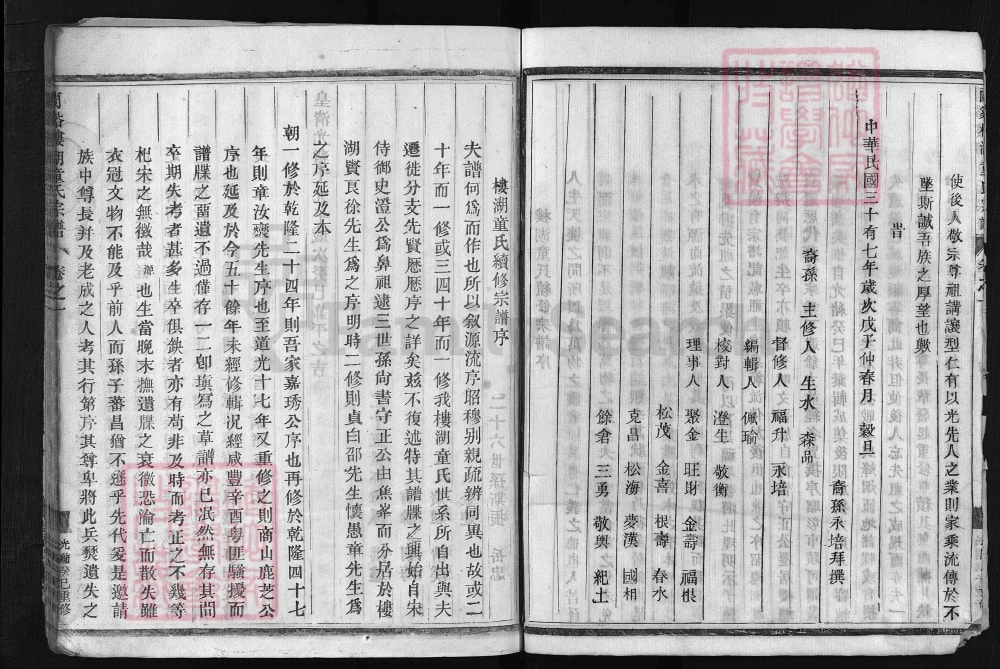 使後人敬宗尊祖講讓型仁有以光先人之業則家乘流傳於不
墜斯誠吾族之厚望也歟
旹
中華民國三十有七年歲次戊子仲春月 穀旦 裔孫永培拜撰
裔孫 主修人 生水 森品
督修人 福升 永培
編輯人 佩瑜
校對人 澄生 敬衡
理事人 聚金 旺財 金壽 福根
松茂 金喜 根壽 春水
克昌 松海 夢漢 國相
餘倉 三勇 敬輿 紀土
樓湖童氏續修宗譜序
夫譜何爲而作也所以敘源流序昭穆别親疏辨同異也故或二
十年而一修或三四十年而一修我樓湖童氏世系所自出與夫
遷徙分支先賢歷歷序之詳矣茲不復述特其譜牒之興始自宋
侍御史澄公爲鼻祖逮三世孫尙書守正公由蕉峯而分居於樓
湖賢良徐先生爲之序明時二修則貞白邵先生懷愚章先生爲
之序延及本
朝一修於乾隆二十四年則吾家嘉琇公序也再修於乾隆四十七
年則章汝襄先生序也至道光十七年又重修之則商山鹿芝公
序也延及於今五十餘年未經修輯況經咸豐辛酉粵匪騷擾而
譜牒之畱遺不過僅存一二卽填寫之草譜亦已泯然無存其間
卒期失考者甚多生卒俱缺者亦有苟非及時而考正之不幾等
杞宋之無徵哉源也生當晚末撫遺牒之衰微恐淪亡而散失雖
衣冠文物不能及乎前人而孫子蕃昌猶不遜乎先代爰是邀請
族中尊長并及老成之人考其行第序其尊卑將此兵燹遺失之
樓湖童氏宗譜 卷之一
光緒癸巳重修